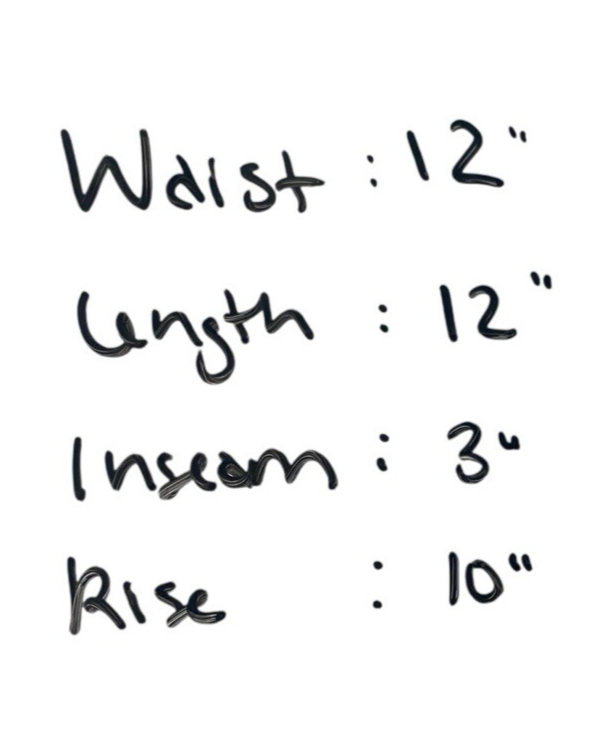 Waist : 12"
Length : 12"
Inseam : 3"
Rise : 10"